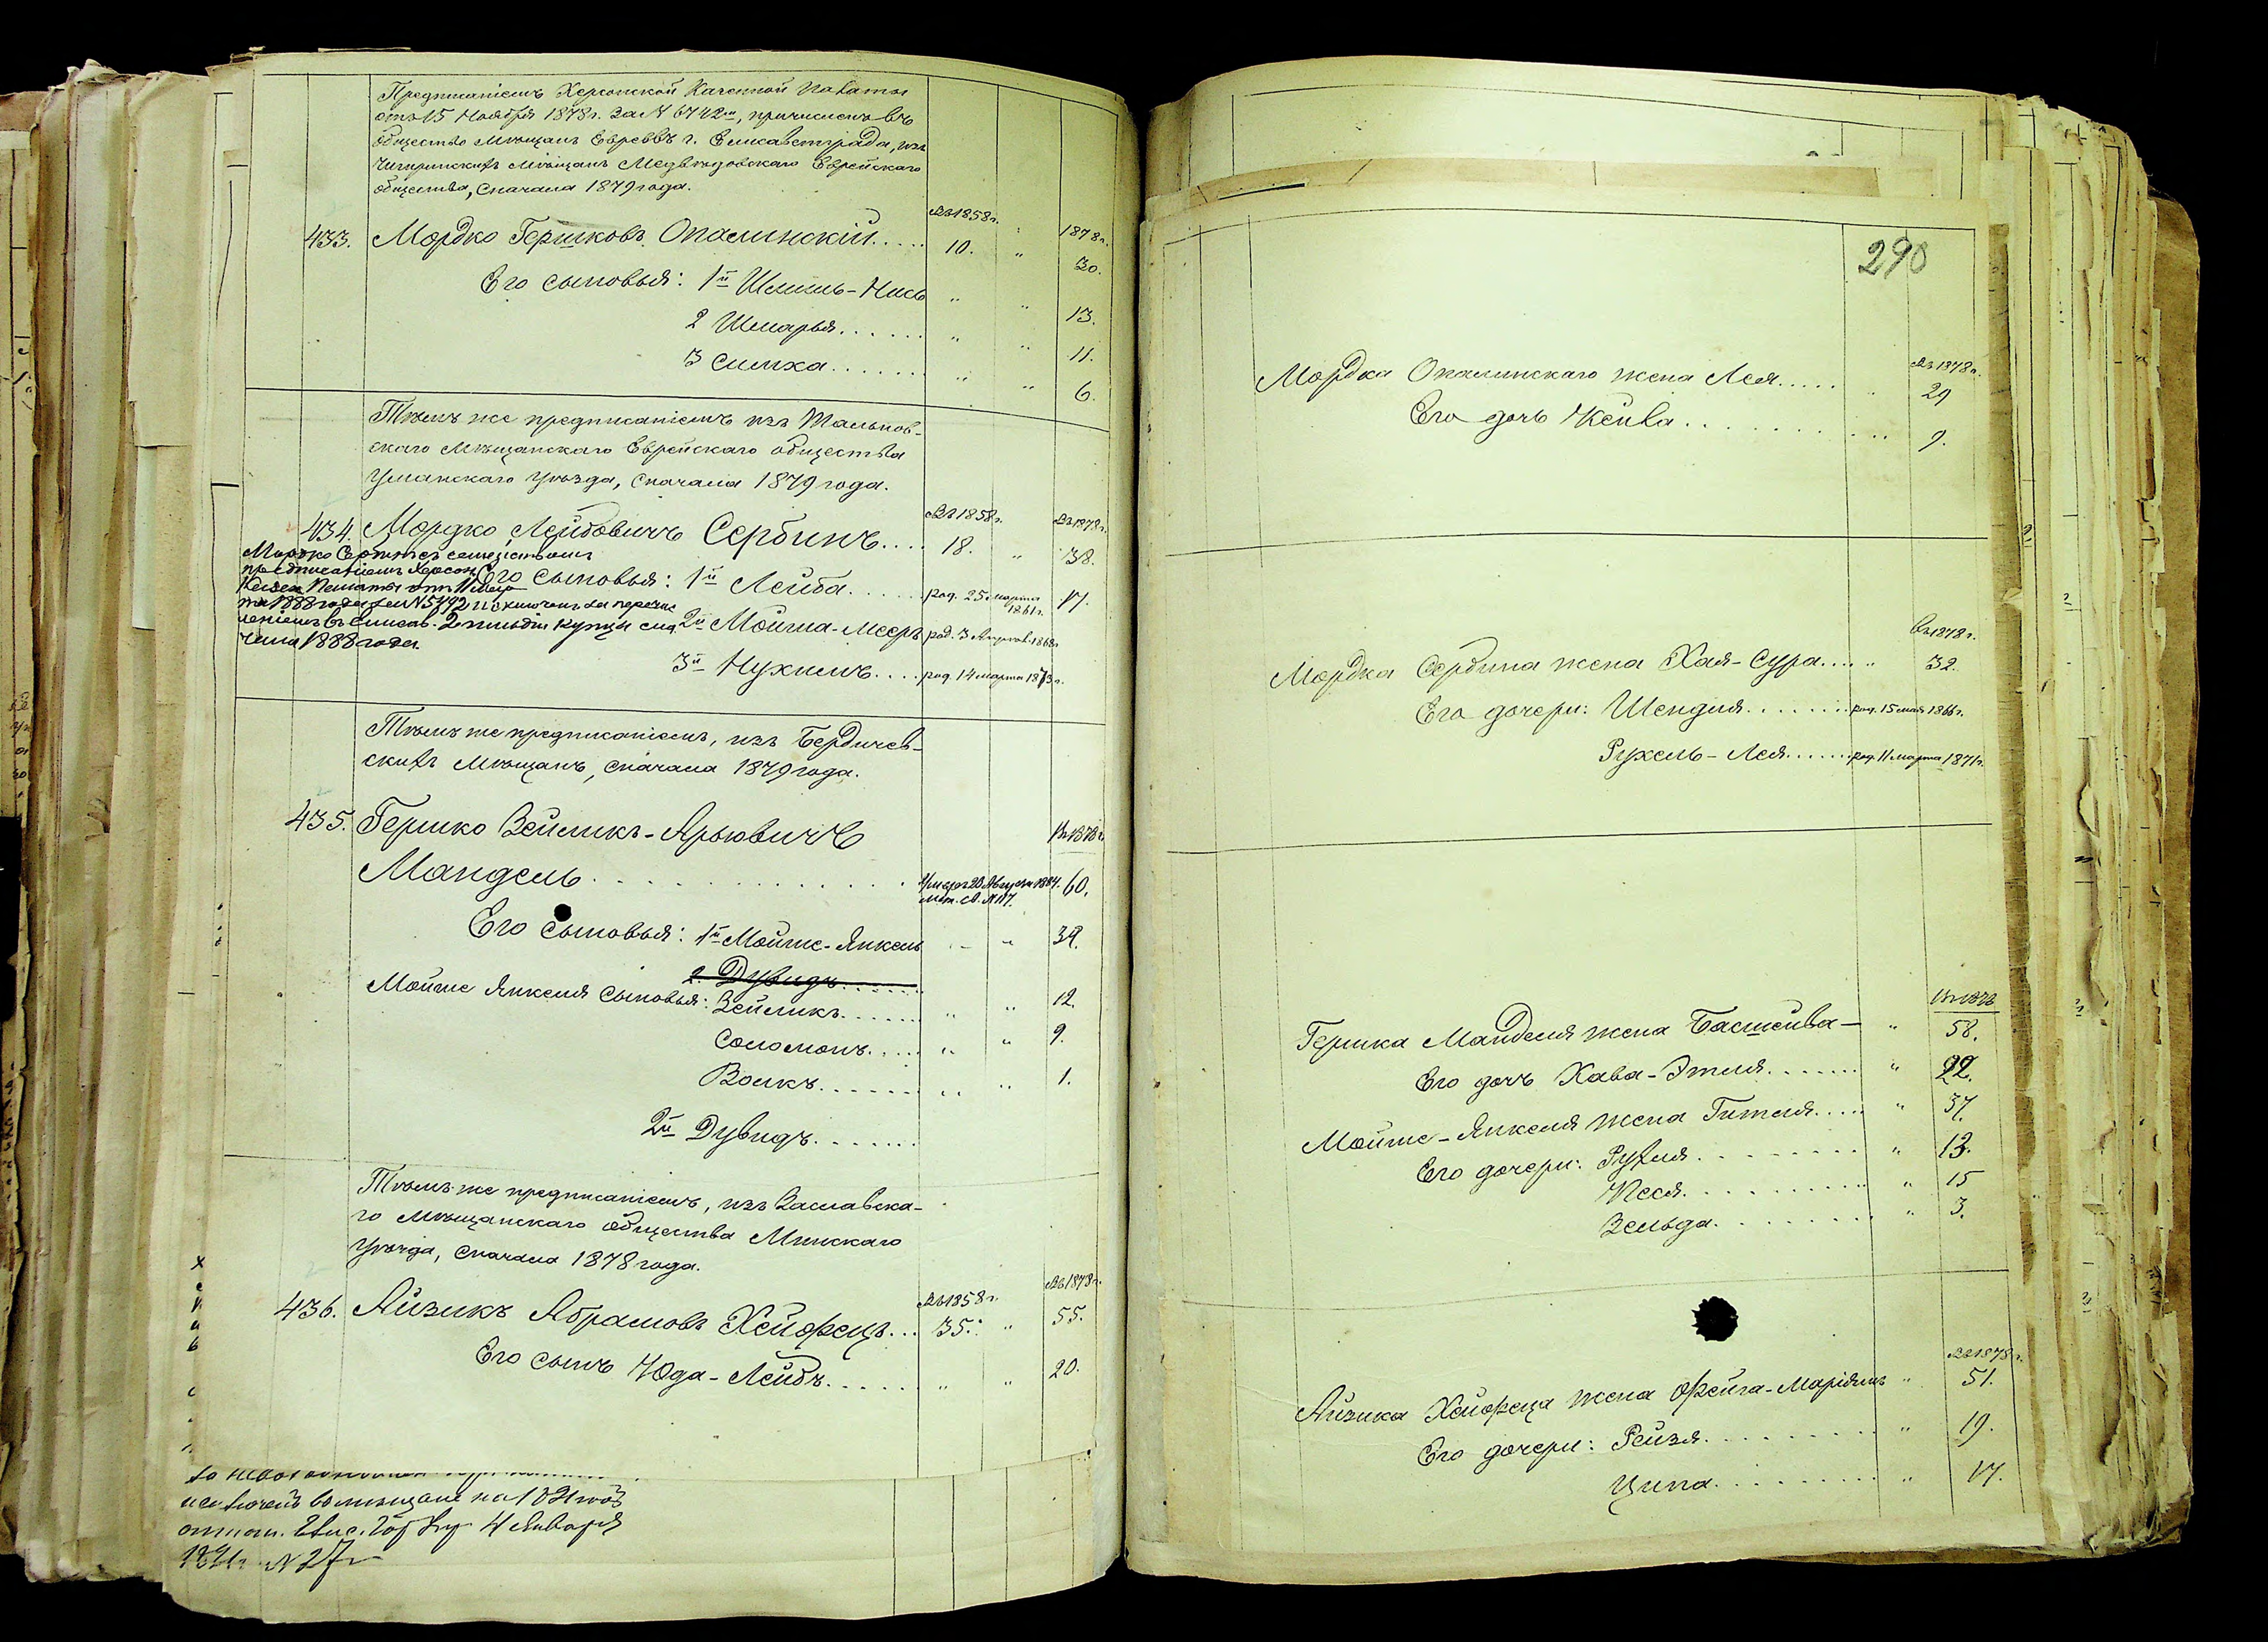 Предписаніемъ Херсонской Казенной Палаты
отъ 15 Ноября 1878 г. за № 6742м, причисленъ въ
общество мѣщанъ Евреевъ г. Елисаветграда, изъ
Чигиринскихъ мѣщанъ Медвѣдовскаго Еврейскаго
общества, сначала 1879 года.
Въ 1858 г. " 1878 г.
433. Мордко Гершковъ Опалинскій..... 10. " 30.
Его сыновья: 1й Шмиль-Нись " " 13.
2 Шмарья...... " " 11.
3 Симха....... " " 6.
Тѣмъ же предписаніемъ изъ Тальнов-
скаго Мѣщанскаго Еврейскаго общества
Уманскаго Уѣзда, сначала 1879 года.
Въ 1858 г. Въ 1878 г.
434. Мордко Лейбовичъ Сербинъ.... 18. " 38.
Мордко Сербинъ с семействомъ
предписаніемъ Херсон.
Казен. Палаты отъ 11 Мар
та 1888 года за № 5792 исключенъ за перечис
леніемъ въ Елисав. 2 гильдіи купцы съ
чала 1888 года.
Его сыновья: 1й Лейба...... род. 25 марта 1861 г. 17.
2й Мойша-Мееръ род. 3 Апреля 1868 г.
3й Нухимъ.... род. 14 марта 1873 г.
Тѣмъ же предписаніемъ, изъ Бердичев-
скихъ Мѣщанъ, сначала 1879 года.
435. Гершко Зейликъ-Арьовичъ Въ 1878 г.
Мандель............ Умеръ 20 Августа 1884. 60.
мет. св. № 117.
Его сыновья: 1й Мойше-Янкель " " 34.
2. Дувидъ......
Мойше Янкеля сыновья: Зейликъ...... " " 12.
Соломонъ..... " " 9.
Волкъ....... " " 1.
2й Дувидъ.......
Тѣмъ же предписаніемъ, изъ Заславска-
го Мѣщанскаго общества Минскаго
Уѣзда, сначала 1878 года.
Въ 1858 г. Въ 1878 г.
436. Айзикъ Абрамовъ Хейфецъ... 35. " 55.
Его сынъ Юда-Лейбъ..... " " 20.
4 Января
№ 27
290
Въ 1878 г.
Мордка Опалинскаго жена Лея..... 29
Его дочь Кейва........... 9.
Въ 1878 г.
Мордка Сербина жена Хая-Сура.... " 32.
Его дочери: Шендля....... род. 15 мая 1866 г.
Рухель-Лея...... род. 11 марта 1871 г.
Въ 1878
Гершка Манделя жена Басшейва— " 58.
Его дочь Хава-Этля....... " 22.
Мойше-Янкеля жена Гитля..... " 37.
Его дочери: Рухля......... " 13.
Песя.......... " 15
Зельда........ " 3.
Въ 1878 г.
Айзика Хейфеца жена Фейга-Маріямъ " 51.
Его дочери: Рейзя......... " 19.
Ципа......... " 17.